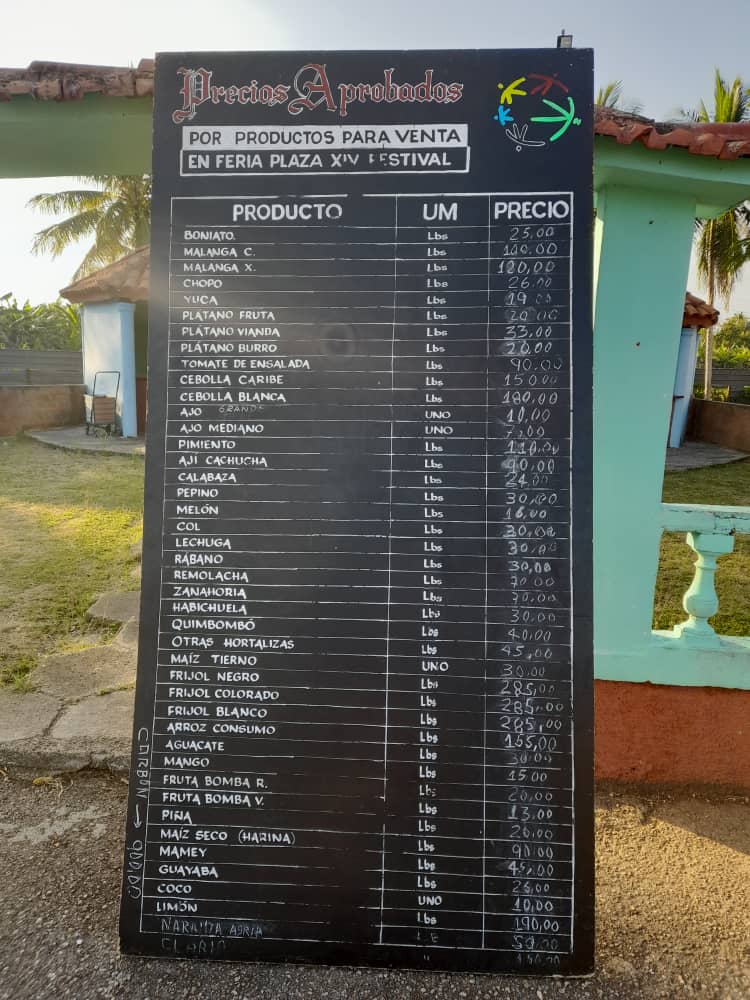 Precios Aprobados
POR PRODUCTOS PARA VENTA
EN FERIA PLAZA XIV FESTIVAL
PRODUCTO UM PRECIO
BONIATO. Lbs 25.00
MALANGA C. Lbs
MALANGA X. Lbs 120,00
CHOPO Lbs 26.00
YUCA Lbs 19.00
PLÁTANO FRUTA Lbs 20.00
PLÁTANO VIANDA Lbs 33.00
PLÁTANO BURRO Lbs 20.00
TOMATE DE ENSALADA Lbs 90.00
CEBOLLA CARIBE Lbs 150.00
CEBOLLA BLANCA Lbs 180,00
AJO GRANDE UNO 10,00
AJO MEDIANO UNO 7,00
PIMIENTO Lbs 110,00
AJÍ CACHUCHA Lbs 90,00
CALABAZA Lbs 24.00
PEPINO Lbs 30,00
MELÓN Lbs 16,00
COL Lbs 30,00
LECHUGA Lbs 30,00
RÁBANO Lbs 30,00
REMOLACHA Lbs 70.00
ZANAHORIA Lbs 70.00
HABICHUELA Lbs 30.00
QUIMBOMBÓ Lbs 40,00
OTRAS HORTALIZAS Lbs 45,00
MAÍZ TIERNO UNO 30,00
FRIJOL NEGRO Lbs 285,00
FRIJOL COLORADO Lbs 285,00
FRIJOL BLANCO Lbs 285,00
ARROZ CONSUMO Lbs 155,00
AGUACATE Lbs 30.00
MANGO Lbs 15.00
FRUTA BOMBA R. Lbs 20,00
FRUTA BOMBA V. Lbs 13,00
PIÑA Lbs 20,00
MAÍZ SECO (HARINA) Lbs 90,00
MAMEY Lbs 45,00
GUAYABA Lbs 25,00
COCO UNO 10,00
LIMÓN Lbs 190,00
NARANJA AGRIA 50.00
CLARIA "
CARBÓN → 900,00